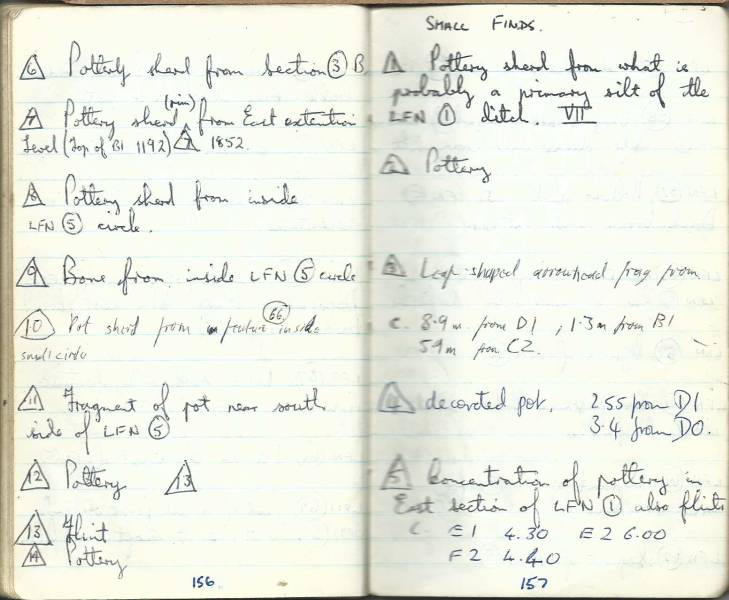 6 Pottery sherd from Section 3 B
7 Pottery sherd (rim) from East extention
Level (Top of B1 1192) 7 1852.
8 Pottery sherd from inside
LFN 5 circle.
9 Bone from inside LFN 5 circle
10 Pot sherd from feature 66 inside
small circle
11 Fragment of pot near south
side of LFN 5
12 Pottery 13
13 Flint
14 Pottery
156
SMALL FINDS.
1 Pottery sherd from what is
probably a primary silt of the
LFN 1 ditch. VII
2 Pottery
3 Leaf-shaped arrowhead frag from
c. 8.9m from D1, 1.3m from B1
5.9m from C2.
4 decorated pot. 2.55 from D1
3.4 from D0.
5 Concentration of pottery in
East section of LFN 1 also flints
C. E1 4.30 E2 6.00
F2 4.40
157